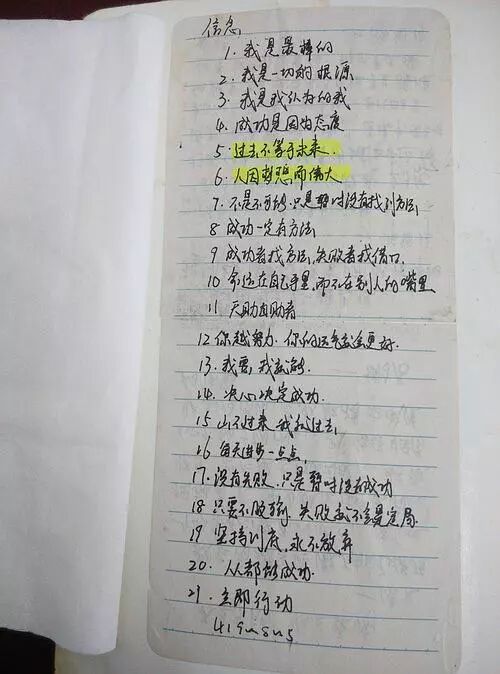 信念
1. 我是最棒的
2. 我是一切的根源
3. 我是我认为的我
4. 成功是因为态度
5 过去不等于未来.
6. 人因梦想而伟大
7 不是不可能.只是暂时没有找到方法
8 成功一定有方法
9 成功者找方法,失败者找借口
10 命运在自己手里,而不在别人的嘴里
11 天助自助者
12 你越努力.你的运气就会更好.
13. 我要,我就能
14. 决心决定成功.
15 山不过来,我就过去,
16 每天进步一点点,
17. 没有失败.只是暂时没有成功
18 只要不放弃,失败就不会是定局.
19 坚持到底,永不放弃
20. 人人都能成功.
21. 立即行动